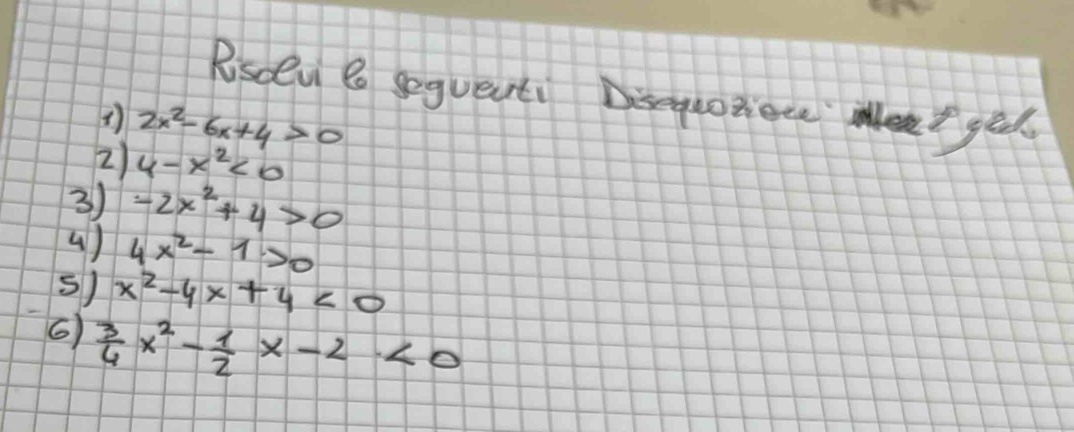 Risolvi le seguenti Disequazioni
1) 2x² - 6x + 4 > 0
2) 4 - x² < 0
3) -2x² + 4 > 0
4) 4x² - 1 > 0
5) x² - 4x + 4 < 0
6) 3/4 x² - 1/2 x - 2 < 0